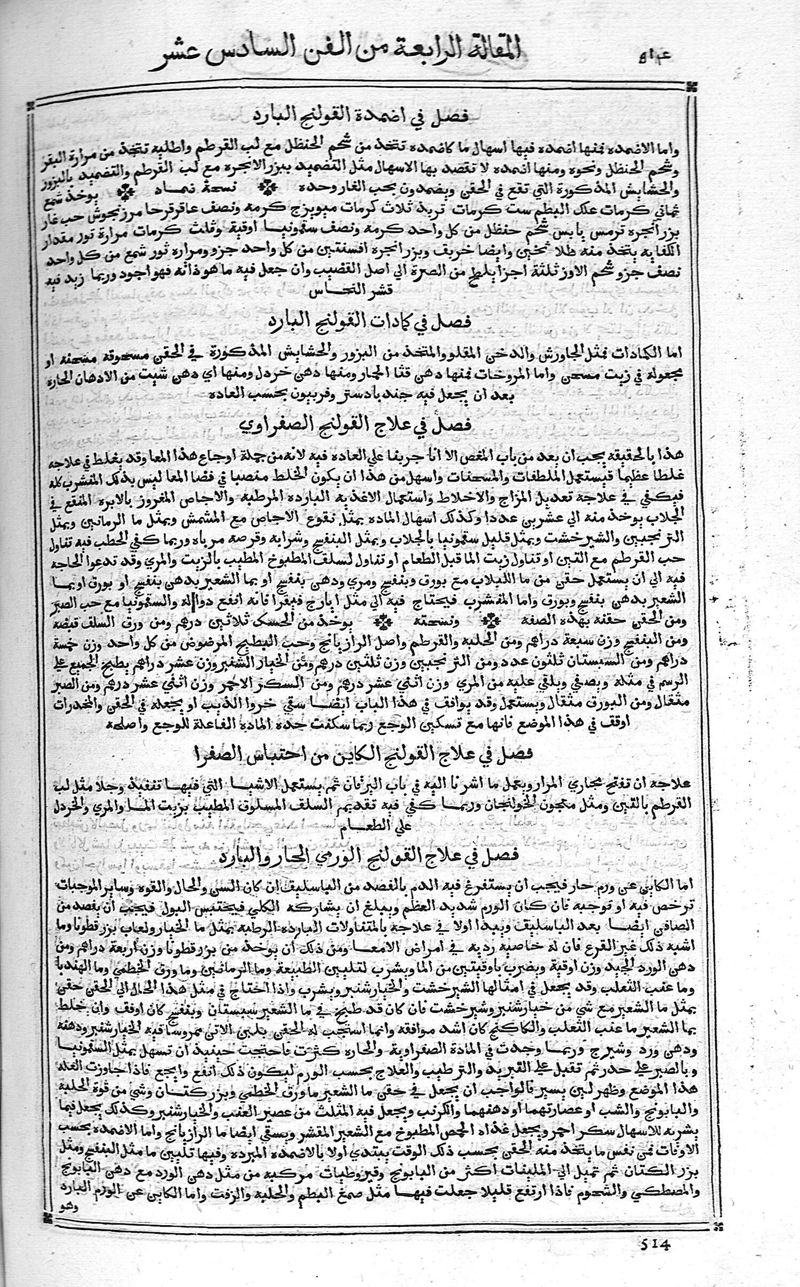 المقالة الرابعة من الفن السادس عشر
فصل في اضمدة القولنج البارد
واما الاضمده فمنها اضمده فيها اسهال ما كاضمده تتخذ من شحم الحنظل مع لب القرطم واطليه تتخذ من مرارة البقر
وشحم الحنظل ونحوه ومنها اضمده لا تقصد بها الاسهال مثل التضميد ببزر الانجره مع لب القرطم والتضميد بالبزور
والحشايش المذكورة التي تقع في الحقن ويضمدون بحب الغار وحده نسخة ضماد يوخذ شمع
ثماني كرمات علك البطم ست كرمات تربد ثلاث كرمات ميويزج كرمه ونصف عاقرقرحا مرزنجوش حب غار
بزر انجره ترمس يابس شحم حنظل من كل واحد كرمه ونصف سقمونيا اوقية وثلث كرمات مرارة ثور مقدار
الكفايه يتخذ منه طلا ثخين وايضا خربق وبزر انجره افسنتين من كل واحد جزو ومراره ثور شمع من كل واحد
نصف جزو شحم الاوز ثلثة اجزا يلطخ من الصرة الي اصل القضيب وان جعل فيه ما هودانه فهو اجود وربما زيد فيه
قشر النحاس
فصل في كمادات القولنج البارد
اما الكمادات فمثل الجاورش والدخن المقلو والمتخذ من البزور والحشايش المذكورة في الحقن مسحوقة مسخنه او
مجعوله في زيت مسخن واما المروخات فمنها دهن قثا الحمار ومنها دهن خردل ومنها اي دهن شيت من الادهان الحاره
بعد ان يجعل فيه جندبادستر وفربيون بحسب العاده
فصل في علاج القولنج الصفراوي
هذا بالحقيقه يجب ان يعد من باب المغص الا انا جرينا علي العاده فيه لانه من جملة اوجاع هذا المعا وقد يغلط في علاجه
غلطا عظيما فيستعمل الملطفات والمسخنات واسهل من هذا ان يكون الخلط منصبا في فضا المعا ليس بذلك المتشرب كله
فيكفي في علاجه تعديل المزاج والاخلاط واستعمال الاغذيه البارده المرطبه والاجاص المغروز بالابره المنقع في
الجلاب يوخذ منه الي عشرين عددا وكذلك اسهال الماده بمثل نقوع الاجاص مع المشمش وبمثل ما الرمانين وبمثل
الترنجبين والشيرخشت وبمثل قليل سقمونيا بالجلاب وبمثل البنفسج وشرابه وقرصه مرباه وربما كفي الخطب فيه تناول
حب القرطم مع التين او تناول زيت الما قبل الطعام او تناول لسلف المطبوخ المطيب بالزيت والمري وقد تدعوا الحاجه
فيه الي ان يستعمل حقن من ما اللبلاب مع بورق وبنفسج ومري ودهن بنفسج او بما الشعير بدهن بنفسج او بورق اوبما
الشعير بدهن بنفسج وبورق واما المتشرب فيحتاج فيه الي مثل ايارج فيقرا فانه انفع دوا له والسقمونيا مع حب الصبر
ومن الحقن حقنه بهذه الصفه ونسخته يوخذ من الحسك ثلاثين درهم ومن ورق السلف قبضه
ومن البنفسج وزن سبعة دراهم ومن الحلبه والقرطم واصل الرازيانج وحب البطيخ المرضوض من كل واحد وزن خمسة
دراهم ومن السبستان ثلثون عدد ومن الترنجبين وزن ثلثين درهم ومن الخيار الشنبر وزن عشر دراهم يطبخ الجميع علي
الرسم في مثله ويصفي ويلقي عليه من المري وزن اثني عشر درهم ومن السكر الاحمر وزن اثني عشر درهم ومن الصبر
مثقال ومن البورق مثقال ويستعمل وقد يوافق في هذا الباب ايضا سقي خروا الذيب او يجعله في الحقن والمخدرات
اوفف في هذا الموضع فانها مع تسكين الوجع ربما سكنت حدة المادة الفاعلة للوجع واصلحه
فصل في علاج القولنج الكاين من احتباس الصفرا
علاجه ان تفتح مجاري المرار ويعمل ما اشرنا اليه في باب اليرقان ثم يستعمل الاشيا التي فيها تنفيذ وجلا مثل لب
القرطم بالتين ومثل معجون الخولنجان وربما كفي فيه تقديم السلف المسلوق المطيب بزيت الما والمري والخردل
علي الطعام
فصل في علاج القولنج الورمي الحار والبارد
اما الكاين عن ورم حار فيجب ان يستفرغ فيه الدم بالفصد من الباسليق ان كان السن والحال والقوه وساير الموجبات
ترخص فيه او توجبه فان كان الورم شديد العظم ويبلغ ان يشاركه الكلي فيحتبس البول فيجب ان يفصد من
الصافن ايضا بعد الباسليق ويبدا اولا في علاجه بالمتناولات البارده الرطبه بمثل ما الخيار ولعاب بزرقطونا وما
اشبه ذلك غير القرع فان له خاصيه رديه في امراض الامعا ومن ذلك ان يوخذ من بزرقطونا وزن اربعة دراهم ومن
دهن الورد الجيد وزن اوقية ويضرب باوقيتين من الما ويشرب لتليين الطبيعة وما الرمانين وما ورق الخطمي وما الهندبا
وما عنب الثعلب وقد يجعل في امثالها الشيرخشت والخيارشنبر ويشرب واذا احتاج في مثل هذا الحال الي الحقن حقن
بمثل ما الشعير مع شي من خيارشنبر وشيرخشت فان كان قد طبخ في ما الشعير سبستان وبنفسج كان اوفف وان خلط
بما الشعير ما عنب الثعلب والكاكنج كان اشد موافقه وانما استحب له الحقن بلبن الاتن ممروسا فيه الخيارشنبر ودهنه
ودهن ورد وشيرج وربما وجدت في المادة الصفراوية والحاره كثرت فاحتجت حينيذ ان تسهل بمثل السقمونيا
وبالصبر علي حذر ثم تقبل علي التبريد والترطيب والعلاج بحسب الورم ليكون ذلك انفع وانجع فاذا جاوزت العله
هذا الموضع وظهر لين يسير فالواجب ان يجعل في حقن ما الشعير ما ورق الخطمي وبزر كتان وشي من قوة الحلبة
والبابونج والشب او عصارتهما او دهنهما والكرنب ويجعل فيه المثلث من عصير العنب والخيارشنبر وكذلك يجعل فيما
يشربه للاسهال سكر احمر ويجعل غذاه الحمص المطبوخ مع الشعير المقشر ويسقي ايضا ما الرازيانج واما الاضمده بحسب
الاوقات فمن نفس ما يتخذ منه الحقن بحسب ذلك الوقت يبتدي اولا بالاضمده المبرده وفيها تليين ما مثل البنفسج ومثل
بزر الكتان ثم تميل الي الملينات اكثر من البابونج وقيروطيات مركبه من مثل دهن الورد مع دهن البابونج
والمصطكي والشحوم فاذا ارتفع قليلا جعلت فيها مثل صمغ البطم والحلبه والزفت واما الكاين عن الورم البارد
وهو
514